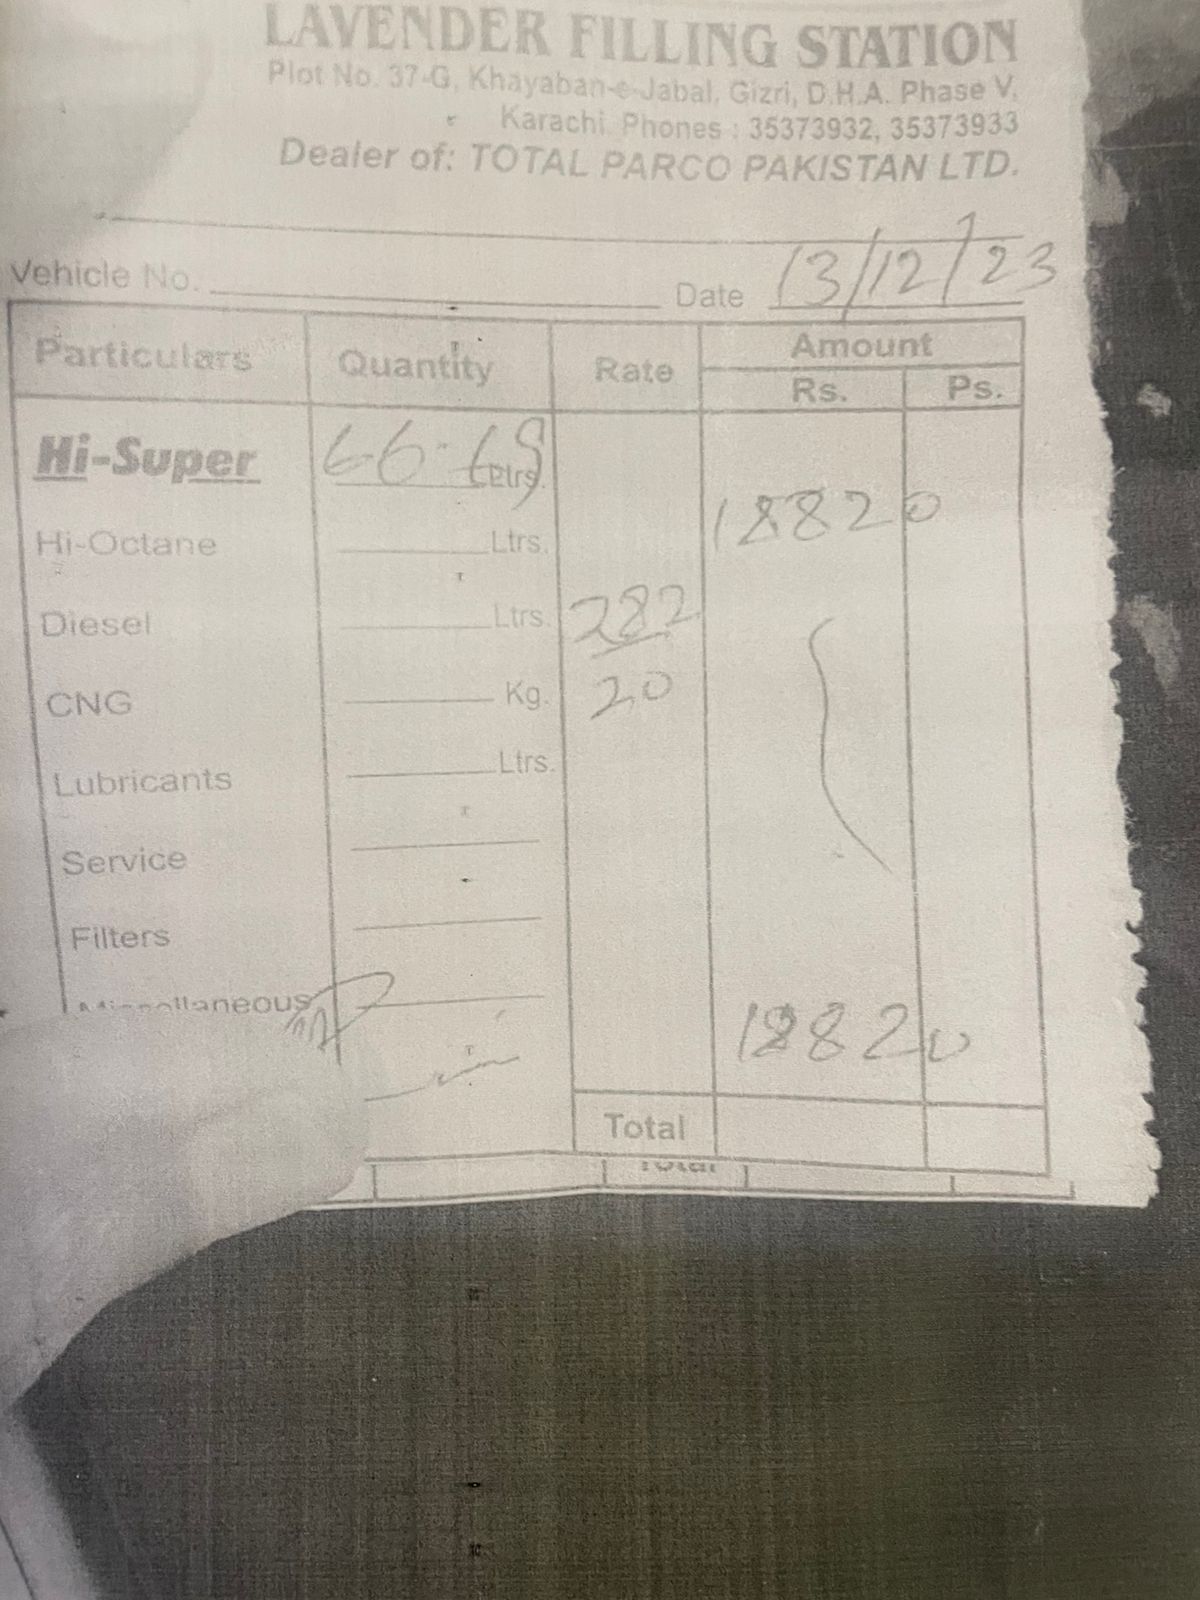 LAVENDER FILLING STATION
Plot No. 37-G, Khayaban-e-Jabal, Gizri, D.H.A. Phase V,
Karachi. Phones : 35373932, 35373933
Dealer of: TOTAL PARCO PAKISTAN LTD.
Vehicle No. Date 13/12/23
Particulars Quantity Rate Amount
Rs. Ps.
Hi-Super Ltrs.
18820
Hi-Octane Ltrs.
Diesel Ltrs. 282
CNG Kg. 20
Lubricants Ltrs.
Service
Filters
Miscellaneous
18820
Total
Total